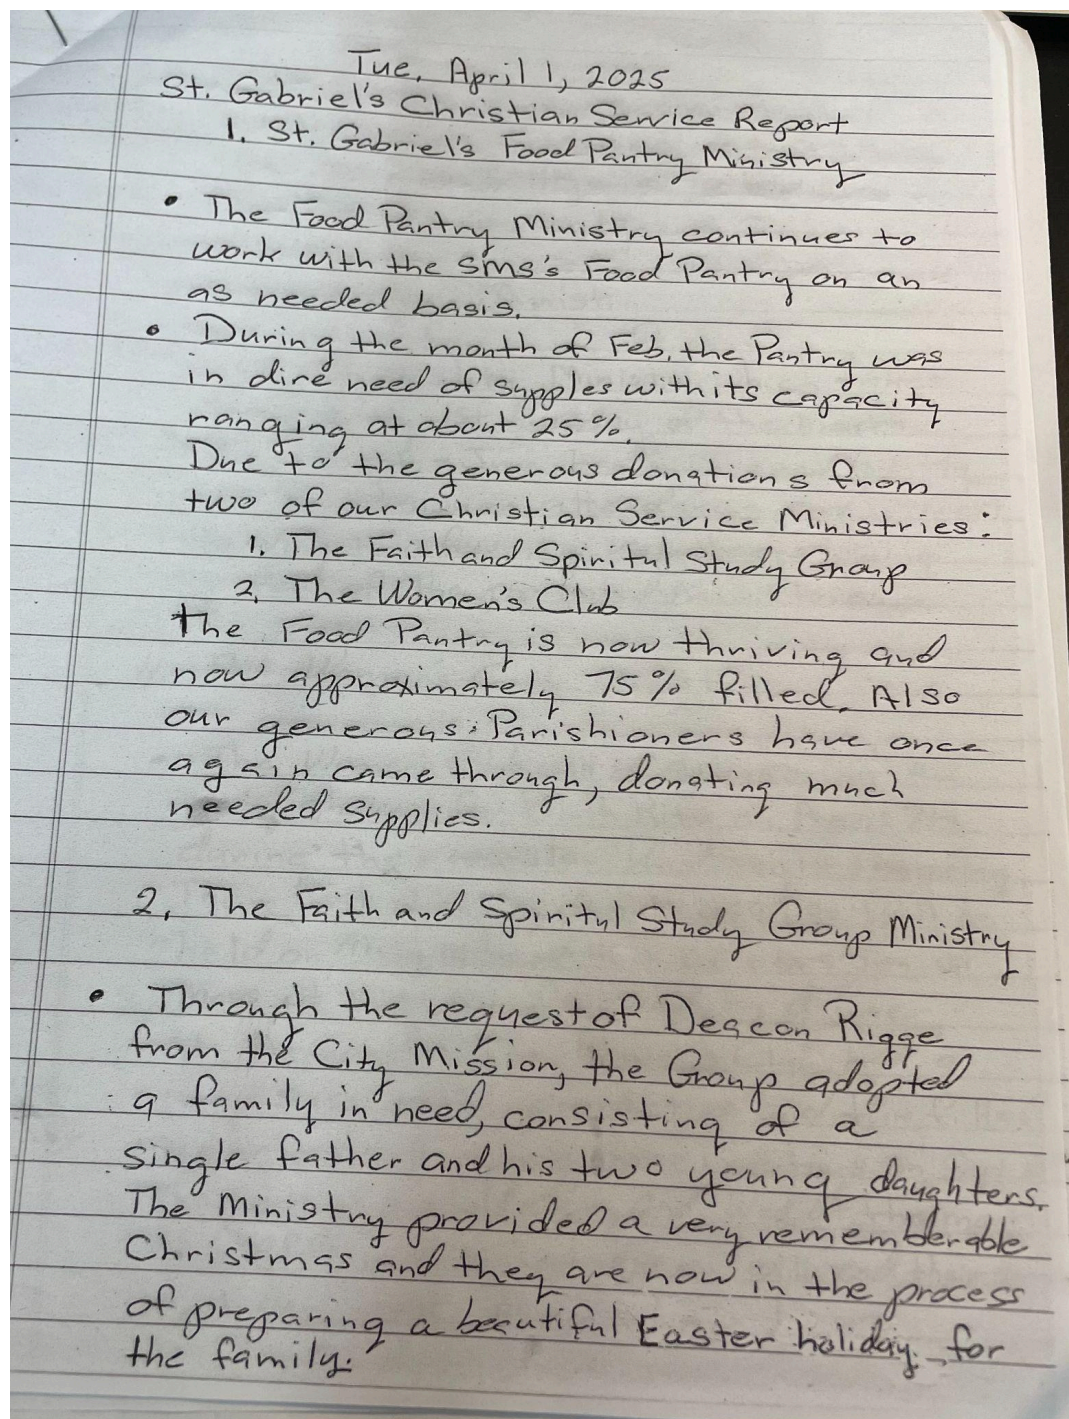 Tue, April 1, 2025
St. Gabriel's Christian Service Report
1. St. Gabriel's Food Pantry Ministry
• The Food Pantry Ministry continues to
work with the SMS's Food Pantry on an
as needed basis.
• During the month of Feb, the Pantry was
in dire need of supples with its capacity
ranging at about 25%.
Due to the generous donations from
two of our Christian Service Ministries:
1. The Faith and Spiritul Study Group
2. The Women's Club
the Food Pantry is now thriving and
now approximately 75% filled. Also
our generous Parishioners have once
again came through, donating much
needed supplies.
2. The Faith and Spiritul Study Group Ministry
• Through the request of Deacon Rigge
from the City Mission, the Group adopted
a family in need, consisting of a
single father and his two young daughters.
The Ministry provided a very rememberable
Christmas and they are now in the process
of preparing a beautiful Easter holiday for
the family.